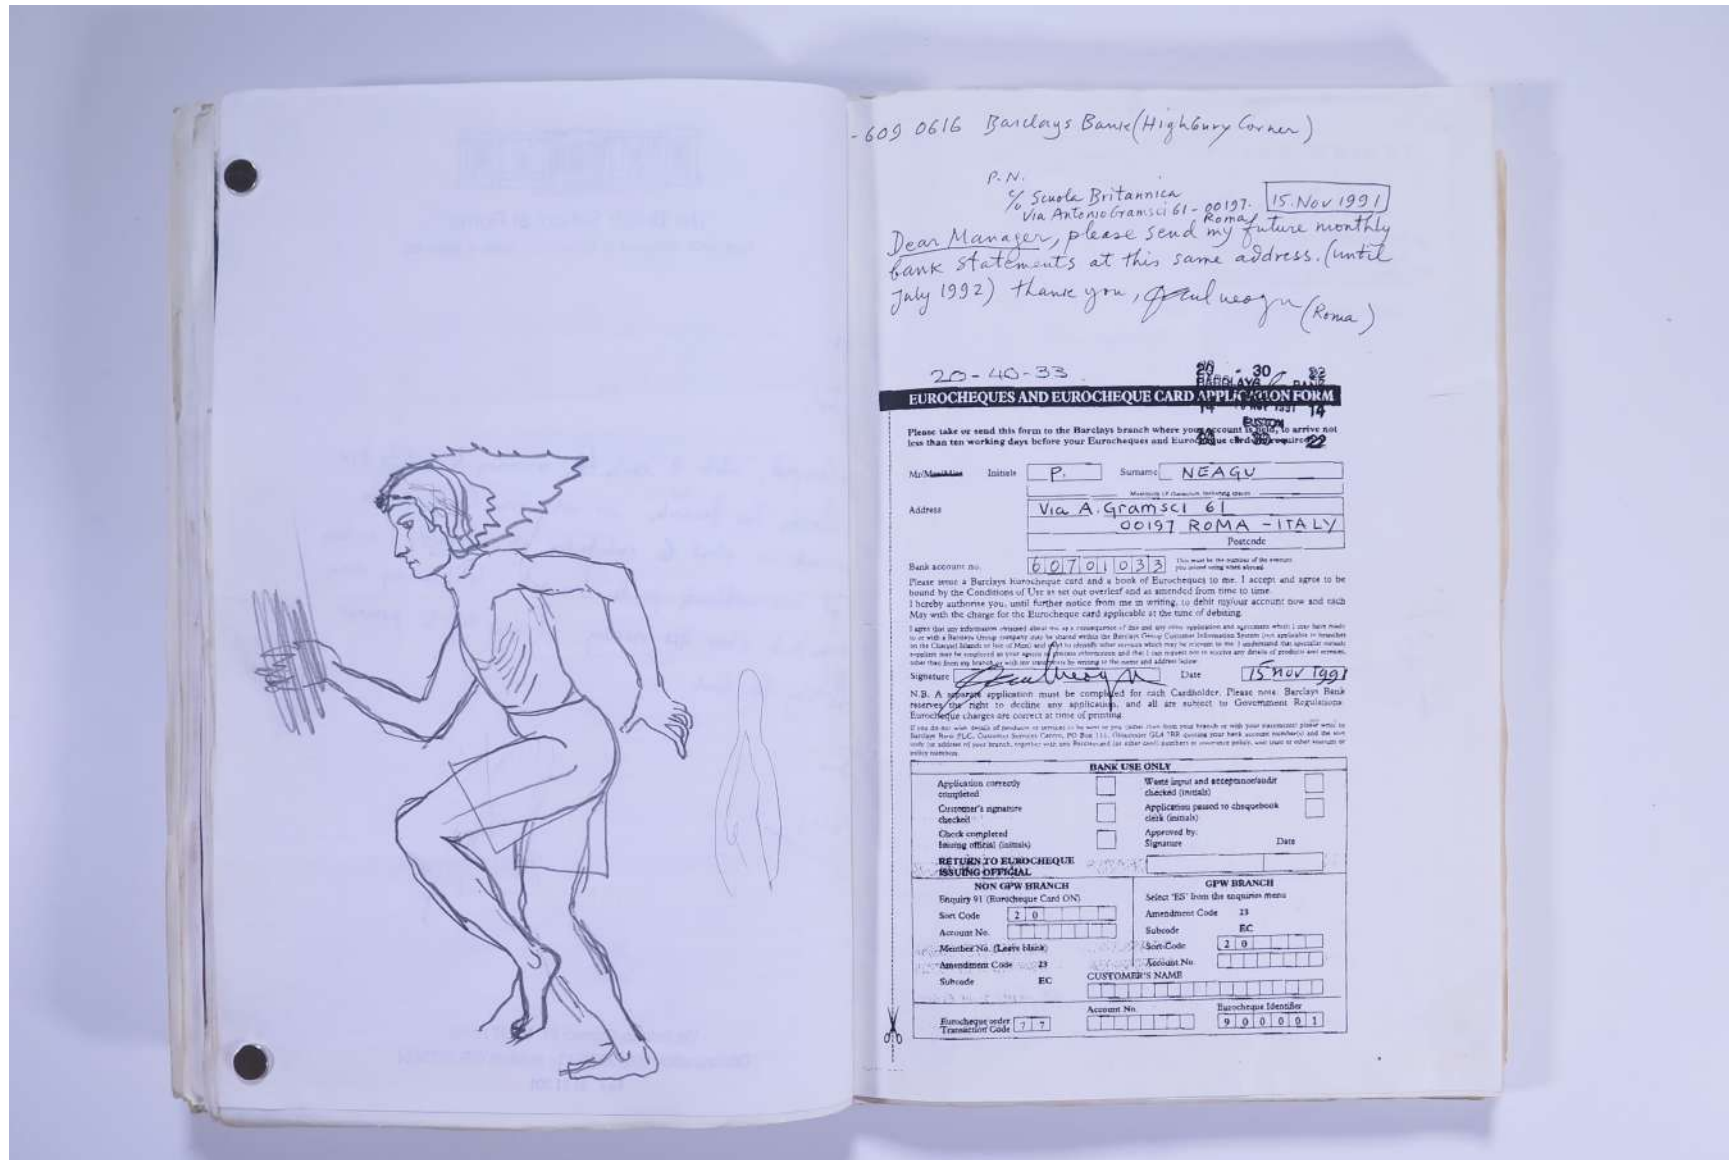 - 609 0616 Barclays Bank (Highbury Corner)
P.N.
c/o Scuola Britannica
Via Antonio Gramsci 61 - 00197.
Roma
15. Nov 1991
Dear Manager, please send my future monthly
bank statements at this same address. (until
July 1992) thank you, Paul Neagu (Roma)
20-40-33
EUROCHEQUES AND EUROCHEQUE CARD APPLICATION FORM
Please take or send this form to the Barclays branch where your account is held, to arrive not
less than ten working days before your Eurocheques and Eurocheque card are required.
Mr/Mrs/Miss Initials P. Surname NEAGU
Maximum 18 characters, including spaces
Address Via A. Gramsci 61
00197 ROMA - ITALY
Postcode
Bank account no. 60701033
Please issue a Barclays Eurocheque card and a book of Eurocheques to me. I accept and agree to be
bound by the Conditions of Use as set out overleaf and as amended from time to time.
I hereby authorise you, until further notice from me in writing, to debit my/our account now and each
May with the charge for the Eurocheque card applicable at the time of debiting.
Signature Paul Neagu Date 15 nov 1991
N.B. A separate application must be completed for each Cardholder. Please note. Barclays Bank
reserves the right to decline any application, and all are subject to Government Regulations.
Eurocheque charges are correct at time of printing.
BANK USE ONLY
Application correctly
completed
Waste input and acceptance/audit
checked (initials)
Customer's signature
checked
Application passed to chequebook
clerk (initials)
Check completed
Issuing official (initials)
Approved by:
Signature Date
RETURN TO EUROCHEQUE
ISSUING OFFICIAL
NON GPW BRANCH
Enquiry 91 (Eurocheque Card ON)
Sort Code 2 0
Account No.
Member No. (Leave blank)
Amendment Code 23
Subcode EC
GPW BRANCH
Select 'ES' from the enquiries menu
Amendment Code 23
Subcode EC
Sort Code 2 0
Account No.
CUSTOMER'S NAME
Eurocheque order
Transaction Code 7 7
Account No.
Eurocheque Identifier
9 0 0 0 0 1